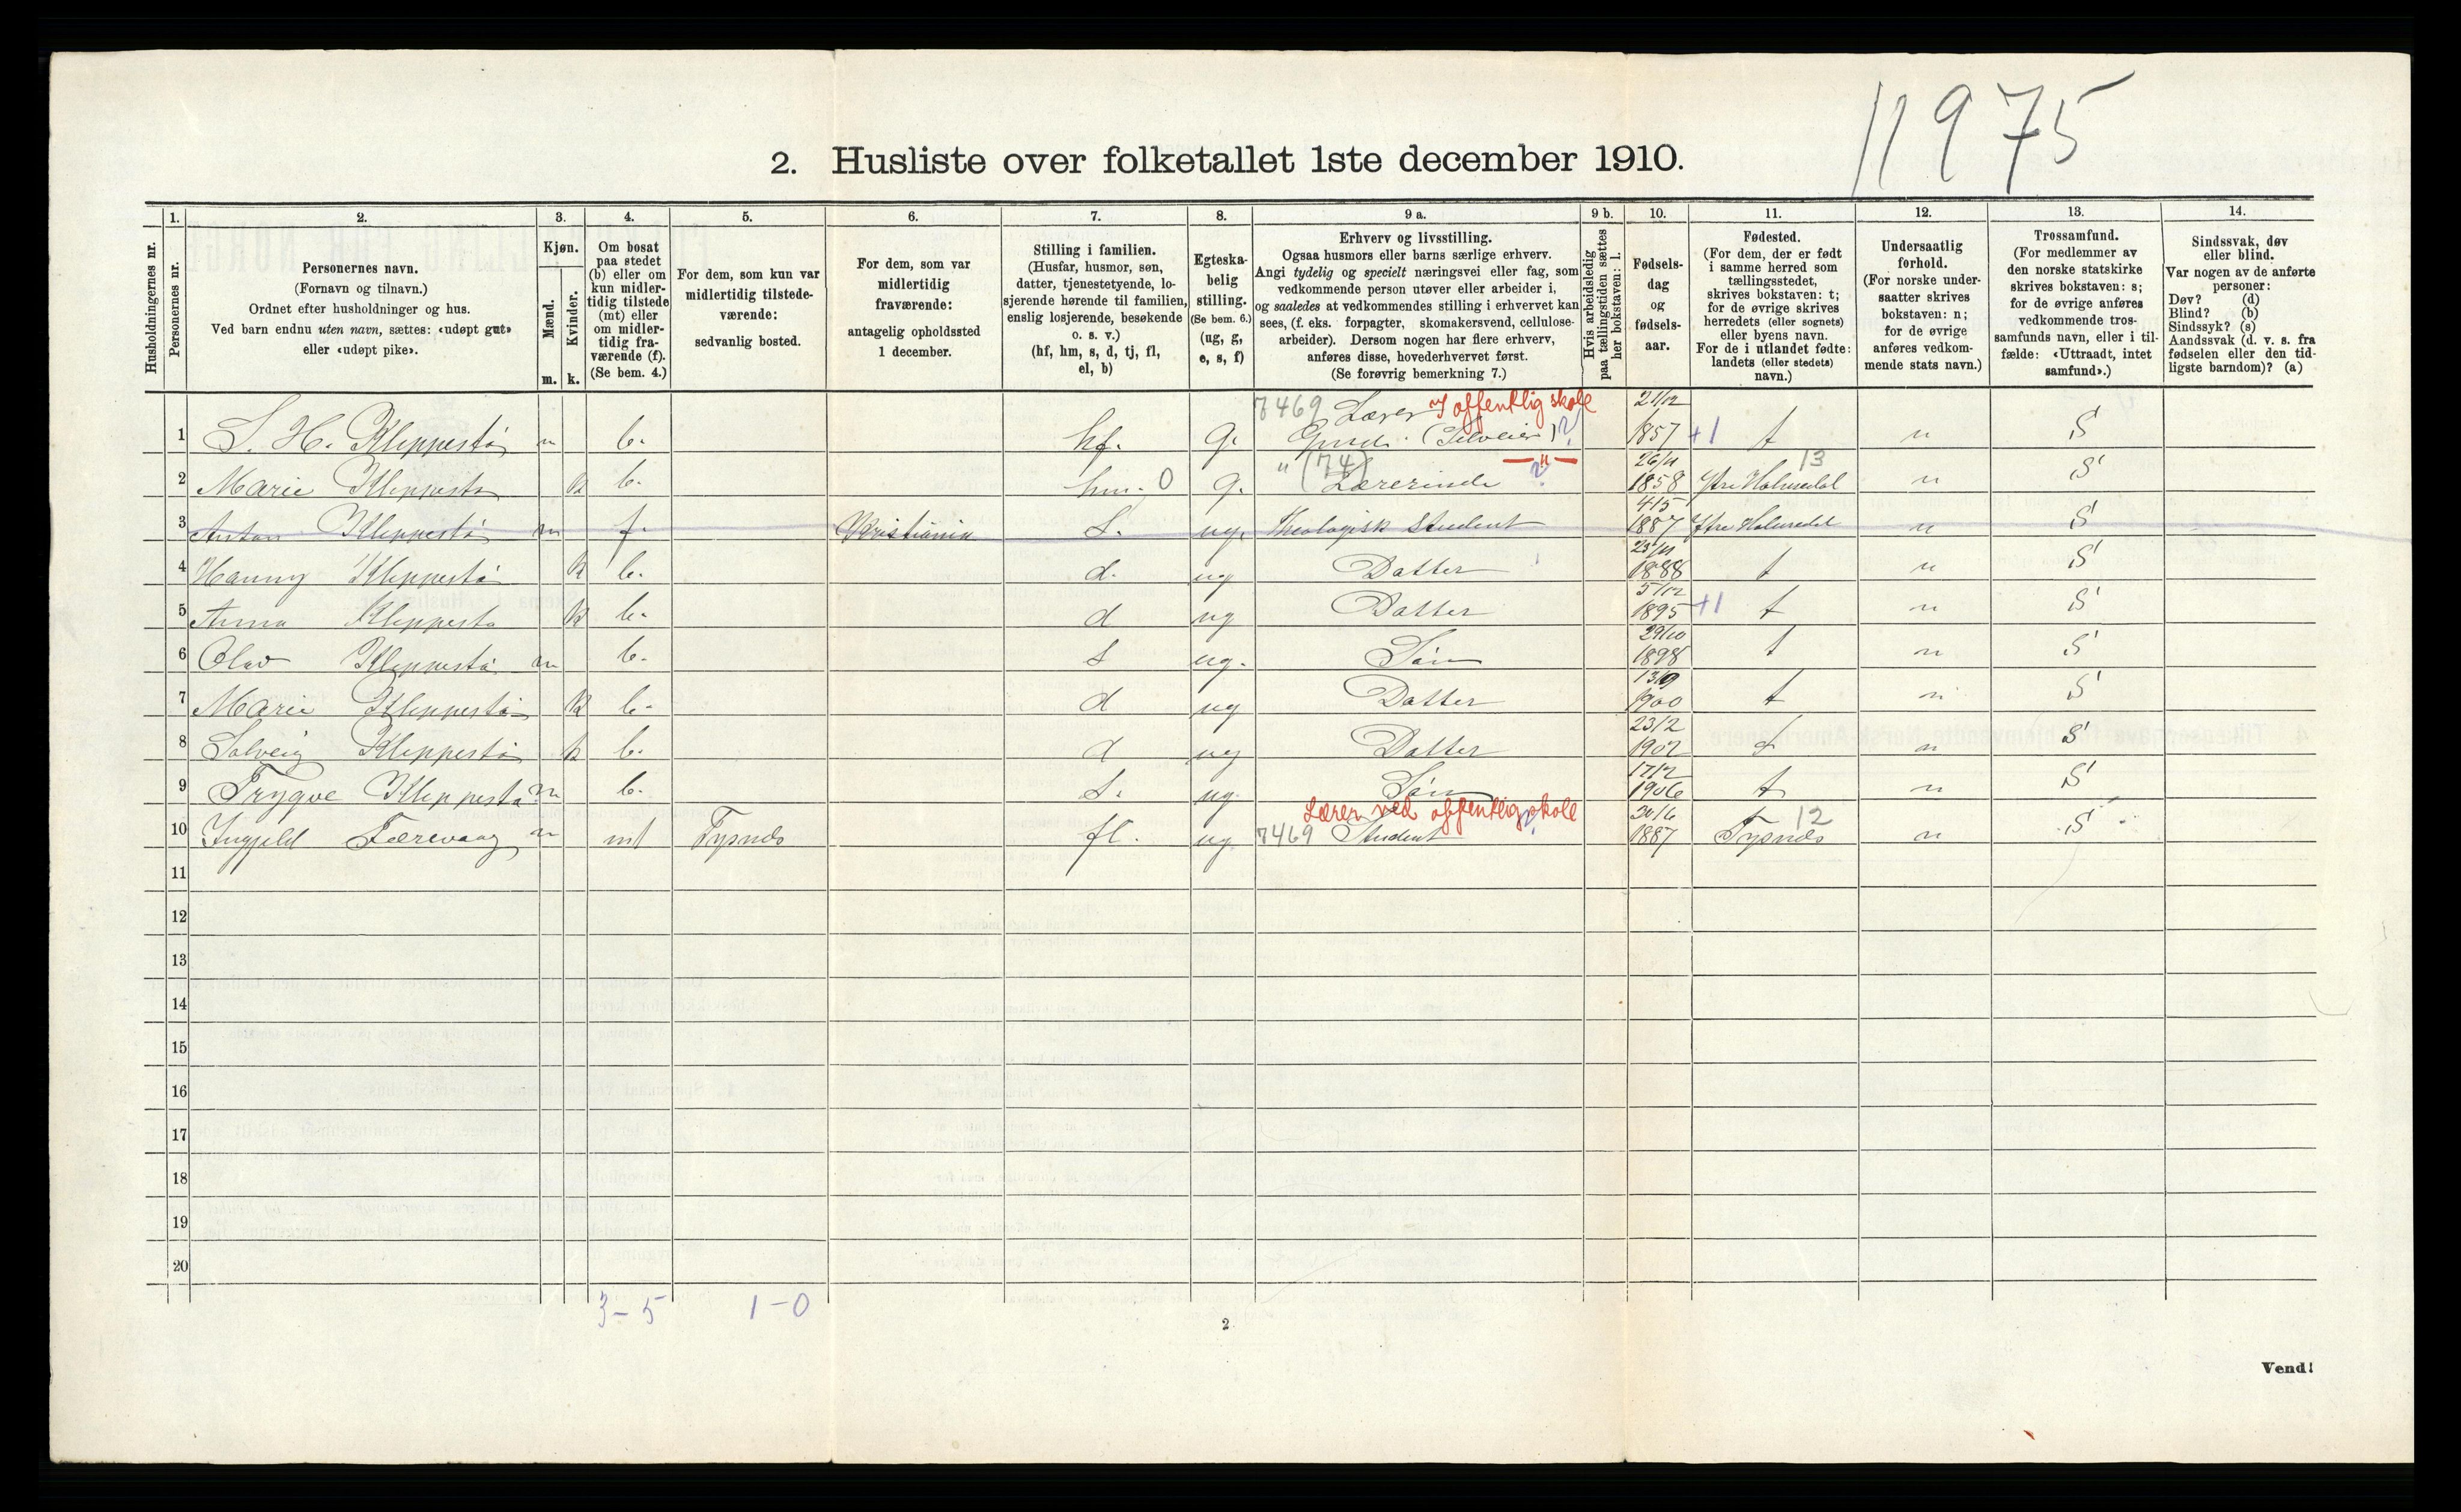 11975
2. Husliste over folketallet 1ste december 1910.
1. 2. 3. 4. 5. 6. 7. 8. 9 a. 9 b. 10. 11. 12. 13. 14.
Husholdningernes nr.
Personernes nr.
Personernes navn.
(Fornavn og tilnavn.)
Ordnet efter husholdninger og hus.
Ved barn endnu uten navn, sættes: «udøpt gut»
eller «udøpt pike».
Kjøn.
Mænd.
Kvinder.
m. k.
Om bosat
paa stedet
(b) eller om
kun midler-
tidig tilstede
(mt) eller
om midler-
tidig fra-
værende (f).
(Se bem. 4.)
For dem, som kun var
midlertidig tilstede-
værende:
sedvanlig bosted.
For dem, som var
midlertidig
fraværende:
antagelig opholdssted
1 december.
Stilling i familien.
(Husfar, husmor, søn,
datter, tjenestetyende, lo-
sjerende hørende til familien,
enslig losjerende, besøkende
o. s. v.)
(hf, hm, s, d, tj, fl,
el, b)
Egteska-
belig
stilling.
(Se bem. 6.)
(ug, g,
e, s, f)
Erhverv og livsstilling.
Ogsaa husmors eller barns særlige erhverv.
Angi tydelig og specielt næringsvei eller fag, som
vedkommende person utøver eller arbeider i,
og saaledes at vedkommendes stilling i erhvervet kan
sees, (f. eks. forpagter, skomakersvend, cellulose-
arbeider). Dersom nogen har flere erhverv,
anføres disse, hovederhvervet først.
(Se forøvrig bemerkning 7.)
Hvis arbeidsledig
paa tællingstiden sættes
her bokstaven: l.
Fødsels-
dag
og
fødsels-
aar.
Fødested.
(For dem, der er født
i samme herred som
tællingsstedet,
skrives bokstaven: t;
for de øvrige skrives
herredets (eller sognets)
eller byens navn.
For de i utlandet fødte:
landets (eller stedets)
navn.)
Undersaatlig
forhold.
(For norske under-
saatter skrives
bokstaven: n;
for de øvrige
anføres vedkom-
mende stats navn.)
Trossamfund.
(For medlemmer av
den norske statskirke
skrives bokstaven: s;
for de øvrige anføres
vedkommende tros-
samfunds navn, eller i til-
fælde: «Uttraadt, intet
samfund».)
Sindssvak, døv
eller blind.
Var nogen av de anførte
personer:
Døv? (d)
Blind? (b)
Sindssyk? (s)
Aandssvak (d. v. s. fra
fødselen eller den tid-
ligste barndom)? (a)
7469 Lærer I offentlig skole 21/12
1 S. H. Kleppestø m b. hf. g. (Selveier) ? 1857 +1 t n S
" (74) —"— 26/11 13
2 Marie Kleppestø k b. hm. 0 g. Lærerinde ? 1858 Ytre Holmedal n S
4/5
3 Anton Kleppestø m f. Kristiania S. ug. Theologisk Student 1887 Ytre Holmedal n S
23/11
4 Hanny Kleppestø k b. d. ug Datter 1888 t n S
5/12
5 Anna Kleppestø k b. d ug Datter 1895 +1 t n S
29/10
6 Olav Kleppestø m b. s ug. Søn 1898 t n S
13/9
7 Marie Kleppestø k b. d ug Datter 1900 t n S
23/2
8 Solveig Kleppestø k b. d ug Datter 1902 t n S
17/2
9 Trygve Kleppestø m b. S. ug. Søn 1906 t n S
Lærer ved offentlig skole 30/6 12
10 Ingjeld Færevaag m mt Tysnes fl. ug 7469 Student ? 1887 Tysnes n S
11
12
13
14
15
16
17
18
19
20
3-5 1-0
2
Vend!